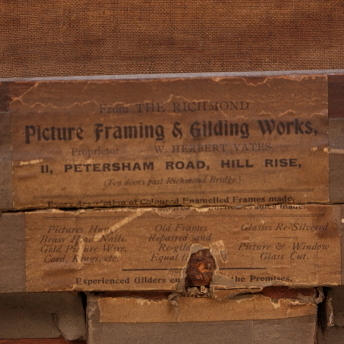 From THE RICHMOND
Picture Framing & Gilding Works,
Proprietor W. HERBERT VATES,
11, PETERSHAM ROAD, HILL RISE,
(Ten doors past Richmond Bridge).
Every description of Coloured Enamelled Frames made.
Pictures Hung
Brass Nails.
Gold Picture Wire,
Cord, Rings, etc.
Old Frames
Repaired and
Re-gilt
Equal to
Glasses Re-Silvered
Picture & Window
Glass Cut.
Experienced Gilders on the Premises.